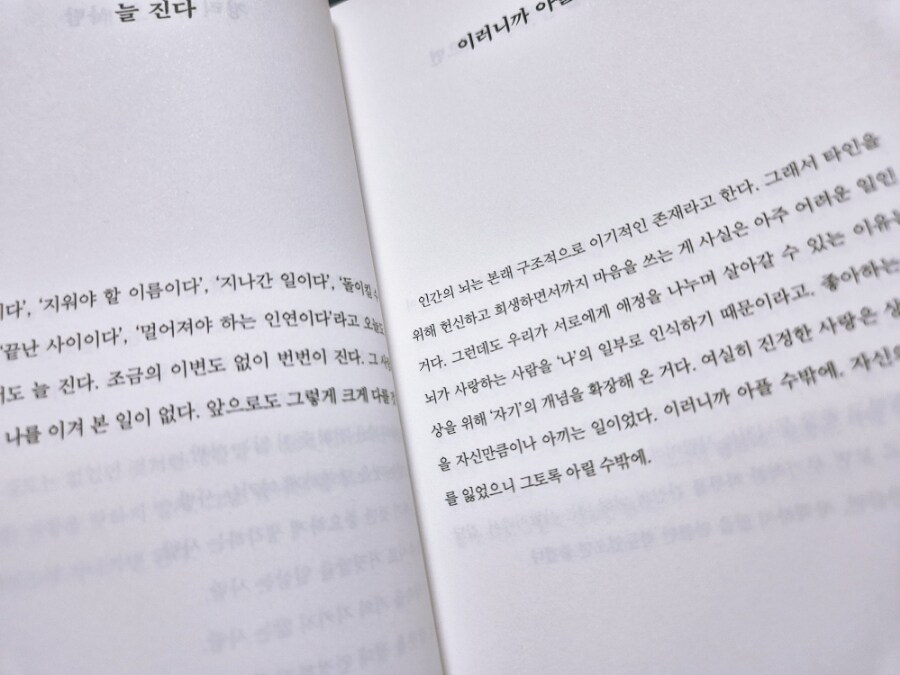 늘 진다
이다', '지워야 할 이름이다', '지나간 일이다', '돌이킬 수
'끝난 사이이다', '멀어져야 하는 인연이다'라고 오늘도
늘 진다. 조금의 이변도 없이 번번이 진다. 그
나를 이겨 본 일이 없다. 앞으로도 그렇게 크게 다를
이러니까 아플
인간의 뇌는 본래 구조적으로 이기적인 존재라고 한다. 그래서 타인을
위해 헌신하고 희생하면서까지 마음을 쓰는 게 사실은 아주 어려운 일인
거다. 그런데도 우리가 서로에게 애정을 나누며 살아갈 수 있는 이유는
뇌가 사랑하는 사람을 '나'의 일부로 인식하기 때문이라고. 좋아하는
상을 위해 '자기'의 개념을 확장해 온 거다. 여실히 진정한 사랑은 상
을 자신만큼이나 아끼는 일이었다. 이러니까 아플 수밖에. 자신의
를 잃었으니 그토록 아릴 수밖에.